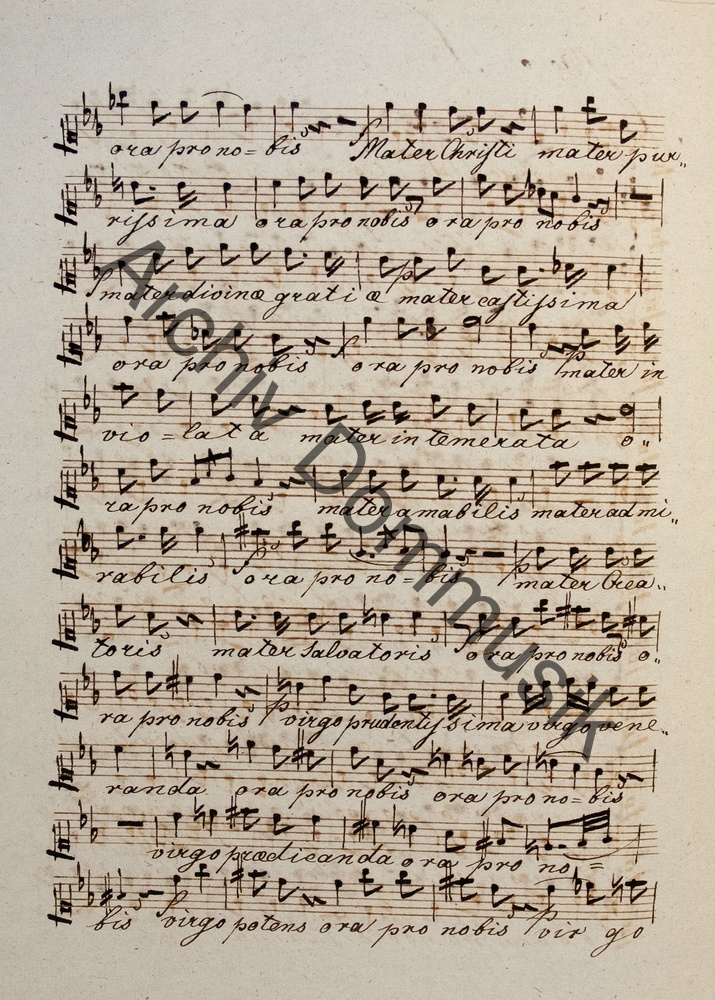 ora pro no= bis Mater Christi mater pur„
rissima ora pro nobis ora pro nobis
mater divinæ grati æ mater castissima
ora pro nobis ora pro nobis mater in
vio = lata mater in temerata o„
ra pro nobis mater amabilis mater ad mi„
rabilis ora pro no= bis mater Crea„
toris mater Salvatoris ora pro nobis o„
ra pro nobis virgo prudentissima virgo vene„
randa ora pro nobis ora pro no= bis
virgo prædicanda ora pro no =
bis virgo potens ora pro nobis vir go
Archiv Dommusik